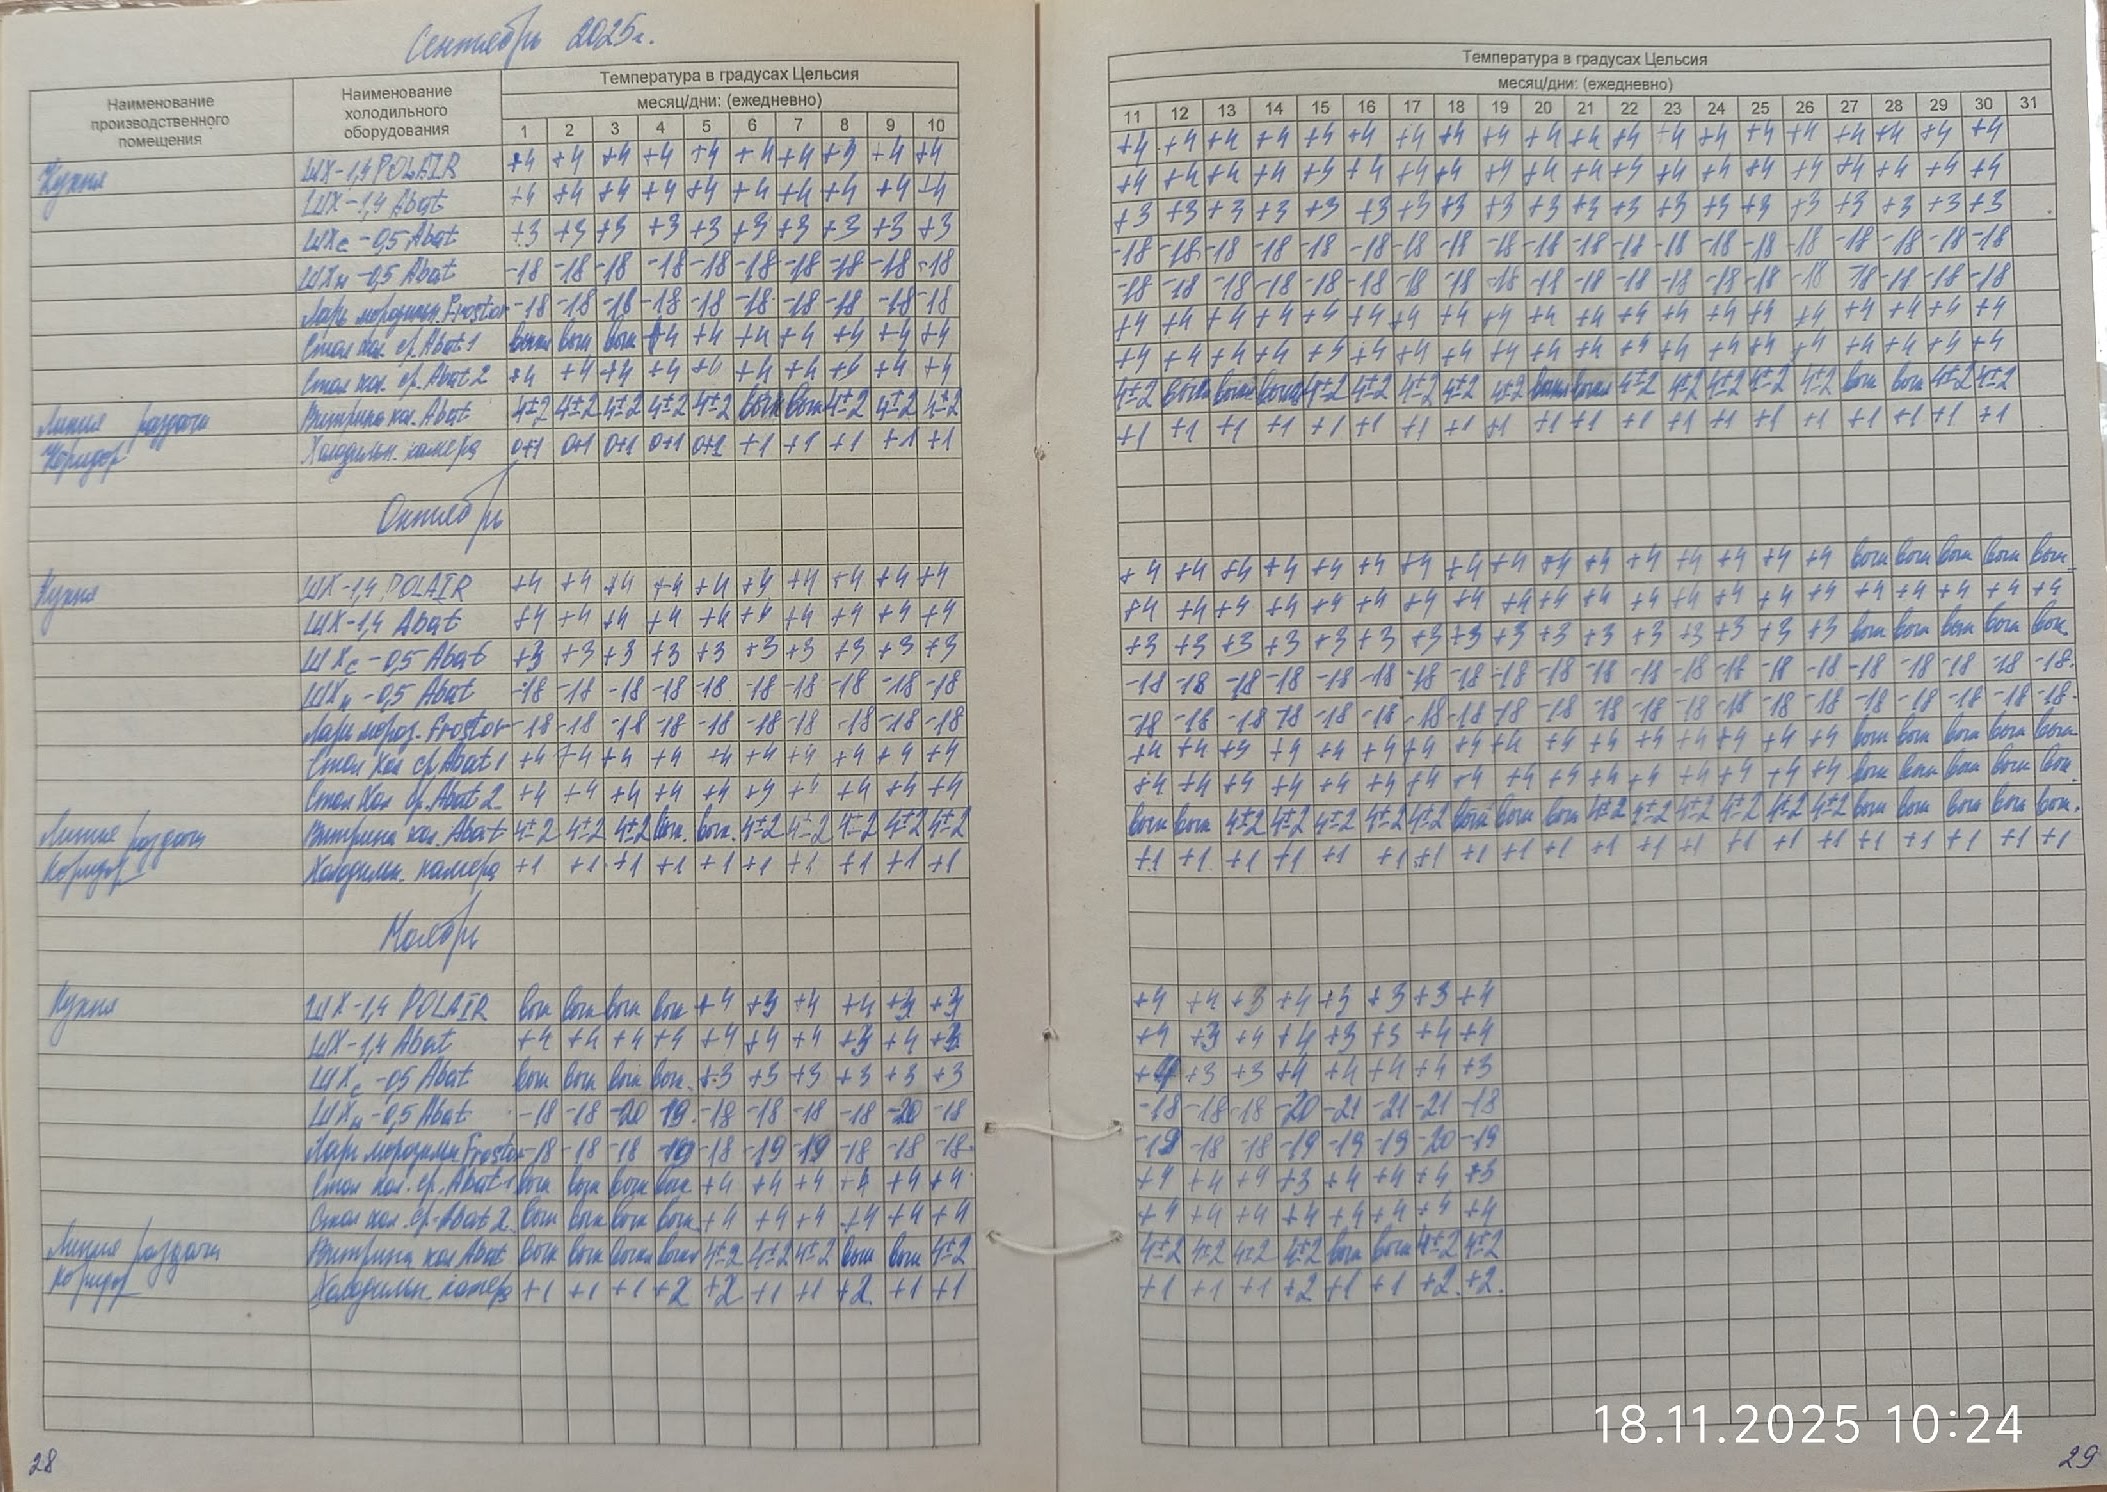 Сентябрь 2025г.
Наименование производственного помещения
Наименование холодильного оборудования
Температура в градусах Цельсия
месяц/дни: (ежедневно)
1 2 3 4 5 6 7 8 9 10
Температура в градусах Цельсия
месяц/дни: (ежедневно)
11 12 13 14 15 16 17 18 19 20 21 22 23 24 25 26 27 28 29 30 31
Кухня ШХ-1,4 POLAIR +4 +4 +4 +4 +4 +4 +4 +3 +4 +4 +4 +4 +4 +4 +4 +4 +4 +4 +4 +4 +4 +4 +4 +4 +4 +4 +4 +4 +4 +4
ШХ-1,4 Abat +4 +4 +4 +4 +4 +4 +4 +4 +4 +4 +4 +4 +4 +4 +4 +4 +4 +4 +4 +4 +4 +4 +4 +4 +4 +4 +4 +4 +4 +4
ШХс-0,5 Abat +3 +3 +3 +3 +3 +3 +3 +3 +3 +3 +3 +3 +3 +3 +3 +3 +3 +3 +3 +3 +3 +3 +3 +3 +3 +3 +3 +3 +3 +3
ШХн-0,5 Abat -18 -18 -18 -18 -18 -18 -18 -18 -18 -18 -18 -18 -18 -18 -18 -18 -18 -18 -18 -18 -18 -18 -18 -18 -18 -18 -18 -18 -18 -18
Ларь морозильн. Frostor -18 -18 -18 -18 -18 -18 -18 -18 -18 -18 -18 -18 -18 -18 -18 -18 -18 -18 -18 -18 -18 -18 -18 -18 -18 -18 -18 -18 -18 -18
Стол хол. ср. Abat 1 выкл выкл выкл +4 +4 +4 +4 +4 +4 +4 +4 +4 +4 +4 +4 +4 +4 +4 +4 +4 +4 +4 +4 +4 +4 +4 +4 +4 +4 +4
Стол хол. ср. Abat 2 +4 +4 +4 +4 +4 +4 +4 +4 +4 +4 +4 +4 +4 +4 +4 +4 +4 +4 +4 +4 +4 +4 +4 +4 +4 +4 +4 +4 +4 +4
Линия раздачи Витрина хол. Abat 4±2 4±2 4±2 4±2 4±2 выкл выкл 4±2 4±2 4±2 4±2 выкл выкл выкл 4±2 4±2 4±2 4±2 4±2 выкл выкл 4±2 4±2 4±2 4±2 4±2 выкл выкл 4±2 4±2
Коридор Холодильн. камера 0+1 0+1 0+1 0+1 0+1 +1 +1 +1 +1 +1 +1 +1 +1 +1 +1 +1 +1 +1 +1 +1 +1 +1 +1 +1 +1 +1 +1 +1 +1 +1
Октябрь
Кухня ШХ-1,4 POLAIR +4 +4 +4 +4 +4 +4 +4 +4 +4 +4 +4 +4 +4 +4 +4 +4 +4 +4 +4 +4 +4 +4 +4 +4 +4 +4 выкл выкл выкл выкл выкл
ШХ-1,4 Abat +4 +4 +4 +4 +4 +4 +4 +4 +4 +4 +4 +4 +4 +4 +4 +4 +4 +4 +4 +4 +4 +4 +4 +4 +4 +4 +4 +4 +4 +4 +4
ШХс-0,5 Abat +3 +3 +3 +3 +3 +3 +3 +3 +3 +3 +3 +3 +3 +3 +3 +3 +3 +3 +3 +3 +3 +3 +3 +3 +3 +3 выкл выкл выкл выкл выкл
ШХн-0,5 Abat -18 -18 -18 -18 -18 -18 -18 -18 -18 -18 -18 -18 -18 -18 -18 -18 -18 -18 -18 -18 -18 -18 -18 -18 -18 -18 -18 -18 -18 -18 -18
Ларь мороз. Frostor -18 -18 -18 -18 -18 -18 -18 -18 -18 -18 -18 -18 -18 -18 -18 -18 -18 -18 -18 -18 -18 -18 -18 -18 -18 -18 -18 -18 -18 -18 -18
Стол хол ср Abat 1 +4 +4 +4 +4 +4 +4 +4 +4 +4 +4 +4 +4 +4 +4 +4 +4 +4 +4 +4 +4 +4 +4 +4 +4 +4 +4 выкл выкл выкл выкл выкл
Стол хол ср. Abat 2 +4 +4 +4 +4 +4 +4 +4 +4 +4 +4 +4 +4 +4 +4 +4 +4 +4 +4 +4 +4 +4 +4 +4 +4 +4 +4 выкл выкл выкл выкл выкл
Линия раздачи Витрина хол. Abat 4±2 4±2 4±2 выкл. выкл. 4±2 4±2 4±2 4±2 4±2 выкл выкл 4±2 4±2 4±2 4±2 4±2 выкл выкл выкл 4±2 4±2 4±2 4±2 4±2 4±2 выкл выкл выкл выкл выкл.
Коридор Холодильн. камера +1 +1 +1 +1 +1 +1 +1 +1 +1 +1 +1 +1 +1 +1 +1 +1 +1 +1 +1 +1 +1 +1 +1 +1 +1 +1 +1 +1 +1 +1 +1
Ноябрь
Кухня ШХ-1,4 POLAIR выкл выкл выкл выкл +4 +3 +4 +4 +3 +3 +4 +4 +3 +4 +3 +3 +3 +4
ШХ-1,4 Abat +4 +4 +4 +4 +4 +4 +4 +3 +4 +3 +4 +3 +4 +4 +3 +3 +4 +4
ШХс-0,5 Abat выкл выкл выкл выкл. +3 +3 +3 +3 +3 +3 +4 +3 +3 +4 +4 +4 +4 +3
ШХн-0,5 Abat -18 -18 -20 -19 -18 -18 -18 -18 -20 -18 -18 -18 -18 -20 -21 -21 -21 -18
Ларь морозильн Frostor -18 -18 -18 -19 -18 -19 -19 -18 -18 -18 -19 -18 -18 -19 -19 -19 -20 -19
Стол хол. ср. Abat 1 выкл выкл выкл выкл +4 +4 +4 +4 +4 +4 +4 +4 +4 +3 +4 +4 +4 +3
Стол хол. ср. Abat 2 выкл выкл выкл выкл +4 +4 +4 +4 +4 +4 +4 +4 +4 +4 +4 +4 +4 +4
Линия раздачи Витрина хол Abat выкл выкл выкл выкл 4±2 4±2 4±2 выкл выкл 4±2 4±2 4±2 4±2 4±2 выкл выкл 4±2 4±2
Коридор Холодильн. камера +1 +1 +1 +2 +2 +1 +1 +2 +1 +1 +1 +1 +1 +2 +1 +1 +2 +2
28
29
18.11.2025 10:24